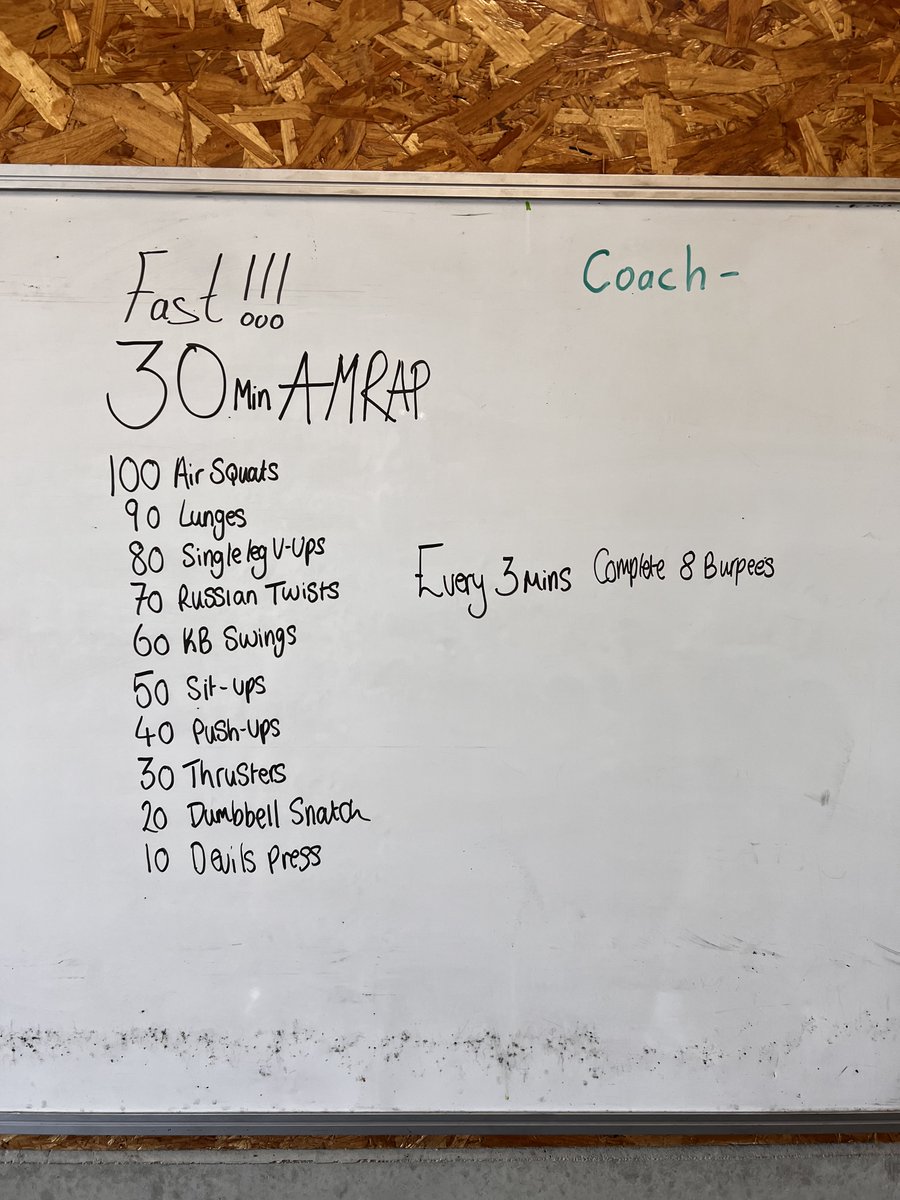 Fast!!!
Coach -
30 Min AMRAP
100 Air Squats
90 Lunges
80 Single leg V-Ups
70 Russian Twists
60 KB Swings
50 Sit-ups
40 Push-ups
30 Thrusters
20 Dumbbell Snatch
10 Devils press
Every 3 mins Complete 8 Burpees